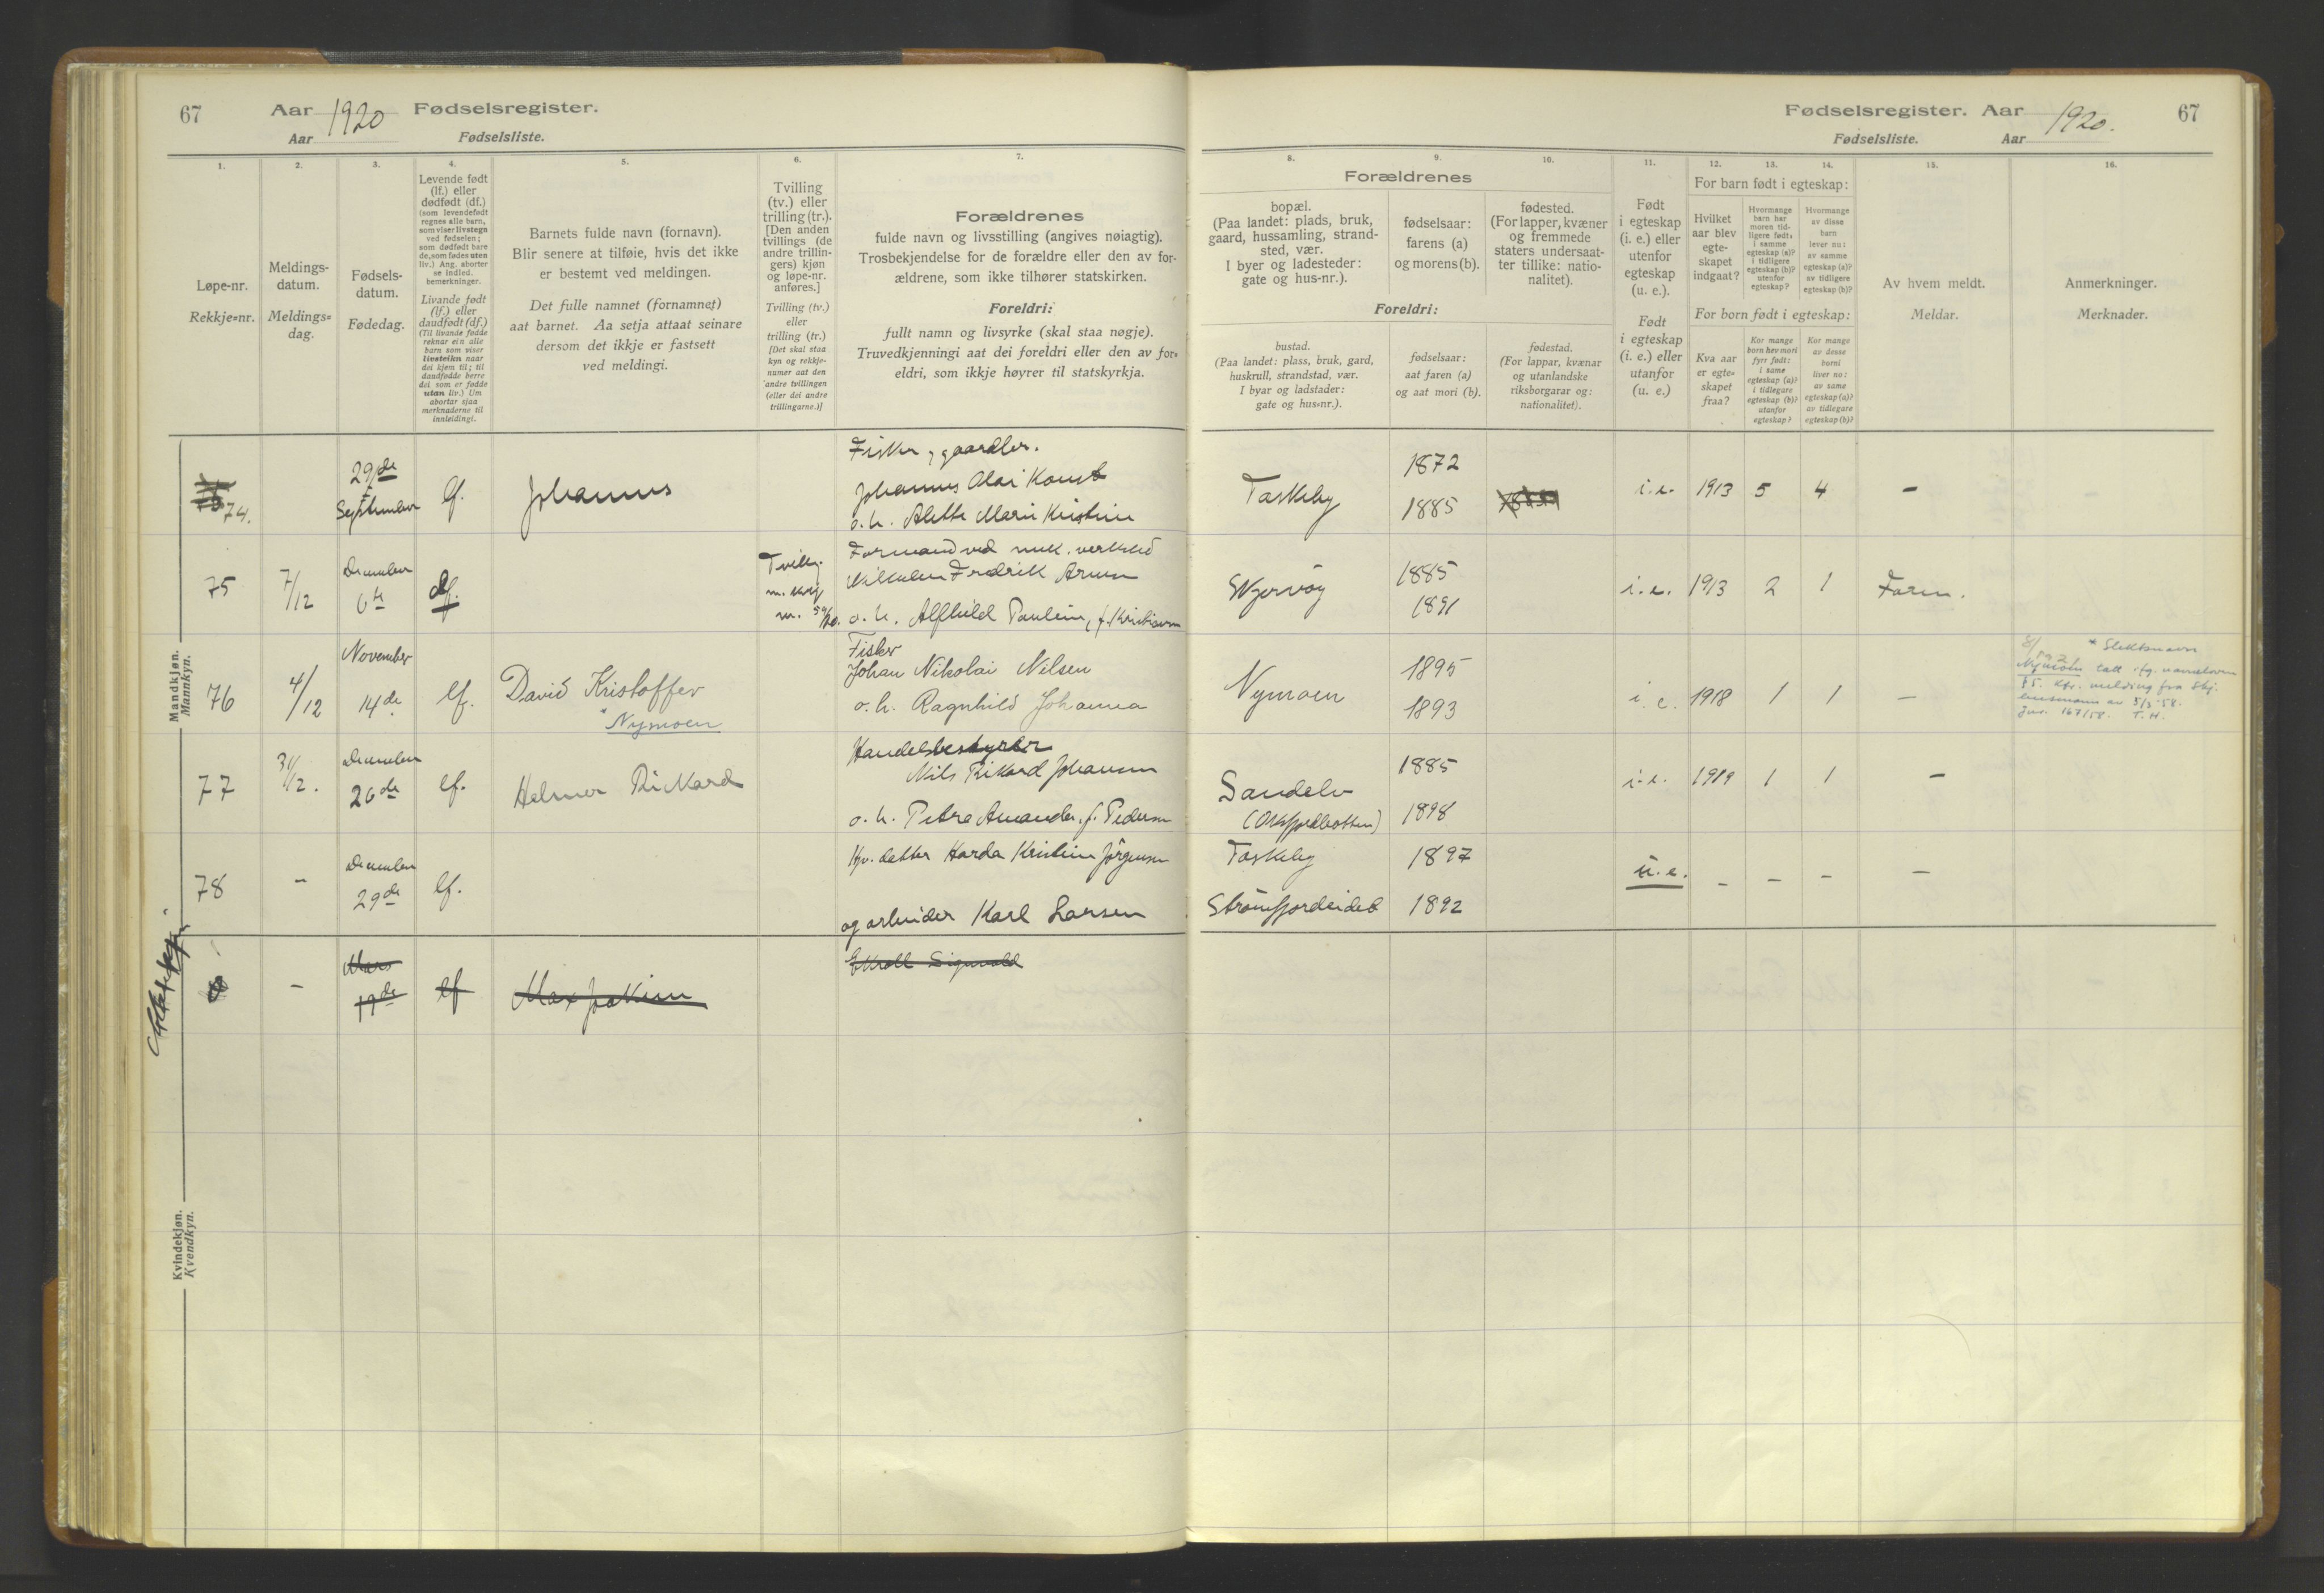 67 Aar 1920 Fødselsregister.
Aar Fødselsliste.
1. 2. 3. 4. 5. 6. 7.
Løpe-nr.
Rekkje-nr.
Meldings-
datum.
Meldings-
dag.
Fødsels-
datum.
Fødedag.
Levende født
(lf.) eller
dødfødt (df.)
(som levendefødt
regnes alle barn,
som viser livstegn
ved fødselen;
som dødfødt bare
de, som fødes uten
liv.) Ang. aborter
se indled.
bemerkninger.
Livande født
(lf.) eller
daudfødt (df.)
(Til livande fødde
reknar ein alle
barn som viser
livsteikn naar
dei kjem til; til
daudfødde berre
dei som er fødde
utan liv.) Um
abortar sjaa
merknaderne til
innleidingi.
Barnets fulde navn (fornavn).
Blir senere at tilføie, hvis det ikke
er bestemt ved meldingen.
Det fulle namnet (fornamnet)
aat barnet. Aa setja attaat seinare
dersom det ikkje er fastsett
ved meldingi.
Tvilling
(tv.) eller
trilling (tr.).
[Den anden
tvillings (de
andre trillin-
gers) kjøn
og løpe-nr.
anføres.]
Tvilling (tv.)
eller
trilling (tr.)
[Det skal staa
kyn og rekkje-
numer aat den
andre tvillingen
(eller dei andre
trillingarne.)]
Forældrenes
fulde navn og livsstilling (angives nøiagtig).
Trosbekjendelse for de forældre eller den av for-
ældrene, som ikke tilhører statskirken.
Foreldri:
fullt namn og livsyrke (skal staa nøgje).
Truvedkjenningi aat dei foreldri eller den av for-
eldri, som ikkje høyrer til statskyrkja.
Mandkjøn.
Mannkyn.
74.
29de
September
lf.
Johannes
Fisker, gaardbr.
Johannes Olai
o. h. Alette Marie Kristine
75
7/12
December
6te
df.
Tvilling
m.
Formand ved mek. verksted
Fredrik
o. h. Alfhild Pauline, f. Kristiansen
76
4/12
November
14de
lf.
David Kristoffer
* Nymoen
Fisker
Johan Nikolai Nilsen
o. h. Ragnhild Johanna
77
31/12.
December
26de
lf.
Helmer Rikard
Handelsbestyrer
Nils Rikard Johansen
o. h. Petra Amanda, f. Pedersen
78
-
December
29de
lf.
datter Harda Kristine Jørgensen
og arbeider Karl Larsen
-
Mars
19de
lf
Max Joakim
Kvindekjøn.
Kvendkyn.
Fødselsregister. Aar 1920. 67
Fødselsliste. Aar
8. 9. 10. 11. 12. 13. 14. 15. 16.
Forældrenes
bopæl.
(Paa landet: plads, bruk,
gaard, hussamling, strand-
sted, vær.
I byer og ladesteder:
gate og hus-nr.).
fødselsaar:
farens (a)
og morens (b).
fødested.
(For lapper, kvæner
og fremmede
staters undersaat-
ter tillike: natio-
nalitet).
Foreldri:
bustad.
(Paa landet: plass, bruk, gard,
huskrull, strandstad, vær.
I byar og ladstader:
gate og hus-nr.).
fødselsaar:
aat faren (a)
og aat mori (b).
fødestad.
(For lappar, kvænar
og utanlandske
riksborgarar og:
nationalitet).
Født
i egteskap
(i. e.) eller
utenfor
egteskap
(u. e.).
Født
i egteskap
(i. e.) eller
utanfor
(u. e.)
For barn født i egteskap:
Hvilket
aar blev
egte-
skapet
indgaat?
Hvormange
barn har
moren tid-
ligere født:
i samme
egteskap (a)?
i tidligere
egteskap (b)?
utenfor
egteskap?
Hvormange
av disse
barn
lever nu:
av samme
egteskap (a)?
av tidligere
egteskap (b)?
For born født i egteskap:
Kva aar
er egte-
skapet
fraa?
Kor mange
born hev mori
fyrr født:
i same
egteskap (a)?
i tidlegare
egteskap (b)?
utanfor
egteskap?
Kor mange
av desse
borni
liver no:
av same
egteskap (a)?
av tidlegare
egteskap (b)?
Av hvem meldt.
Meldar.
Anmerkninger.
Merknader.
Taskeby
1872
1885
i.e. 1913 5 4 -
Skjervøy
1885
1891
i.e. 1913 2 1 Faren.
Nymoen
1895
1893
i. e. 1918 1 1 -
* Slektsnavn
Nymoen tatt ifg. navneloven
§5. kfr. melding fra Skj.
lensmann av 5/3-58.
Jnr. 167/58. T. H.
Sandelv
(Oksfjordbotten)
1885
1898
i.e. 1919 1 1 -
Taskeby 1897
Straumfjordeidet 1892
u.e. - - - -